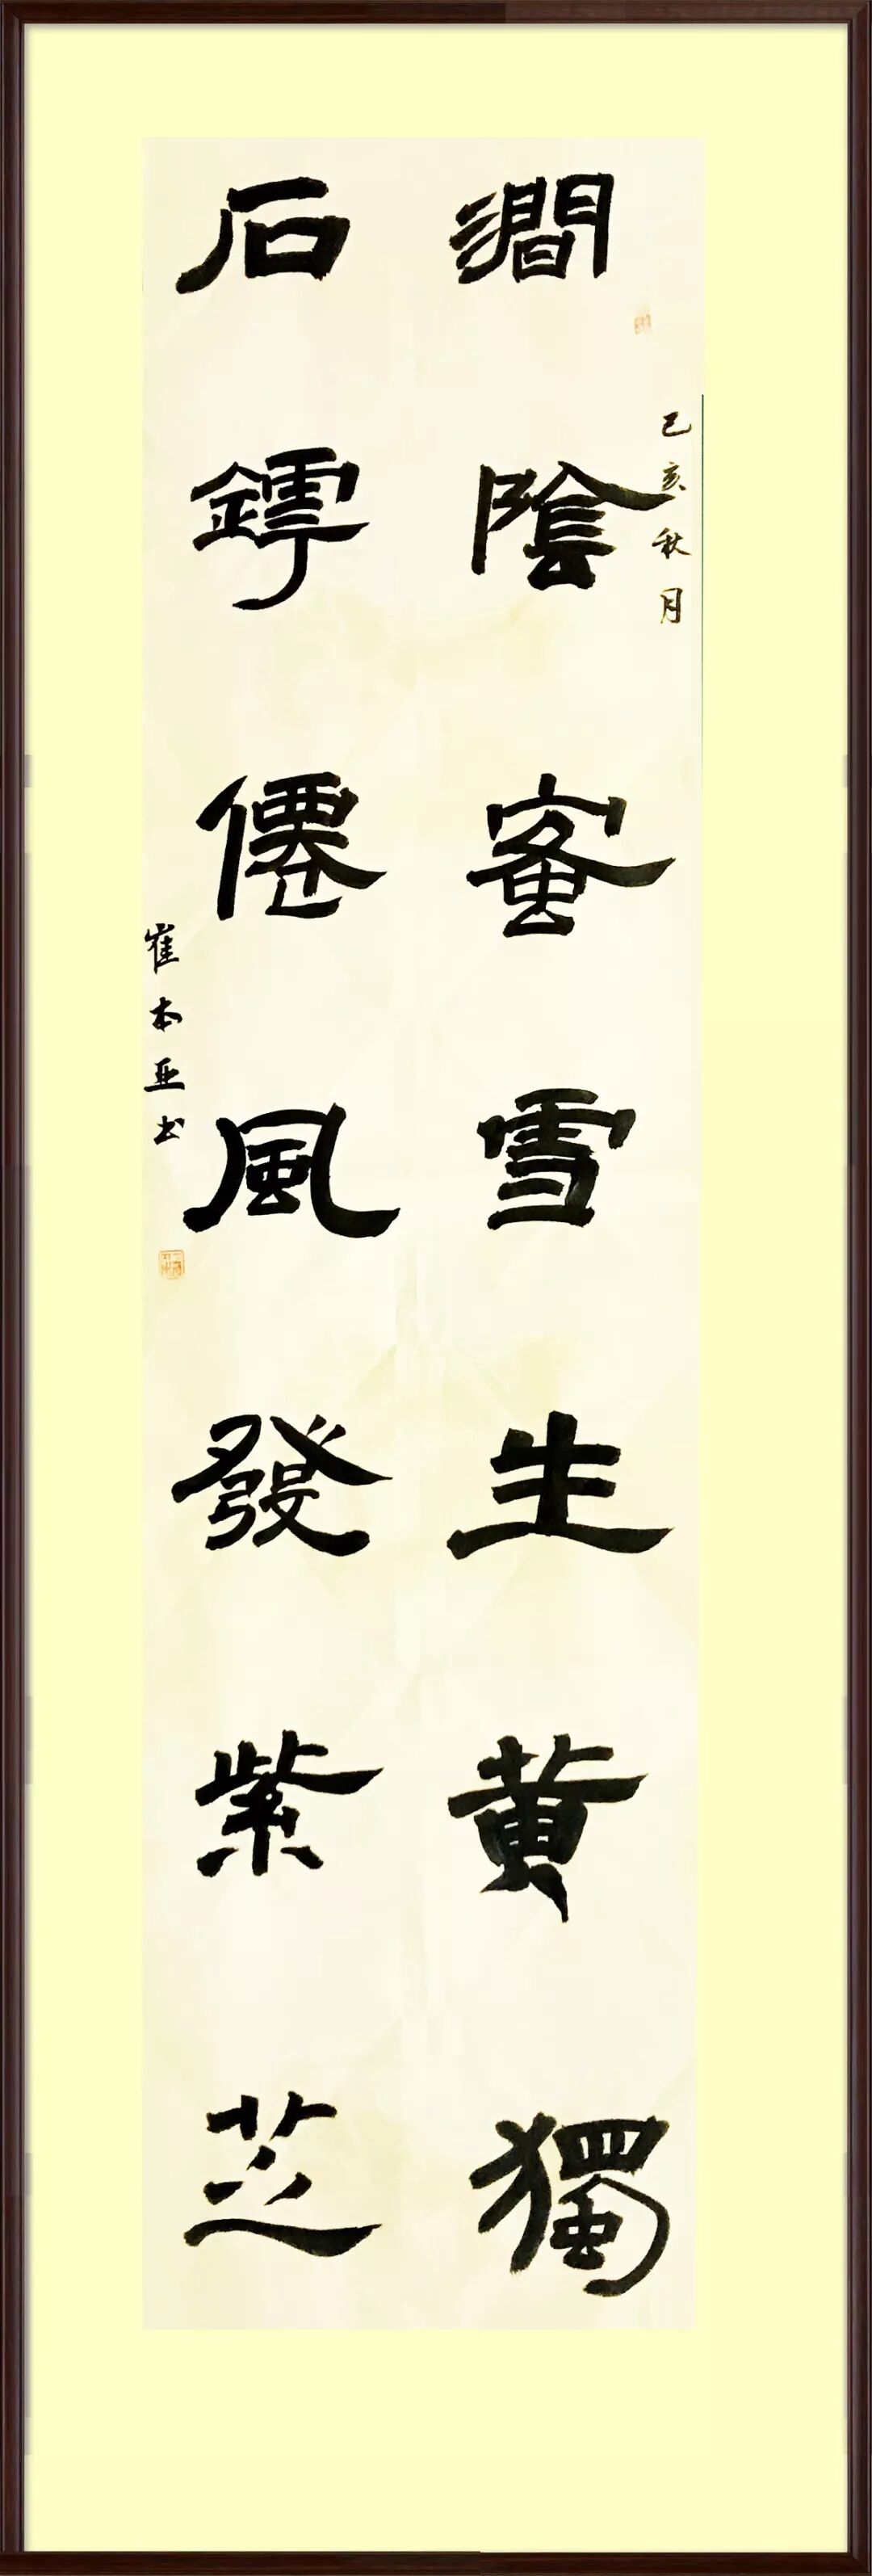 己亥秋月
澗陰蜜雪生黄獨
石鏬僊風發紫芝
崔本亚书